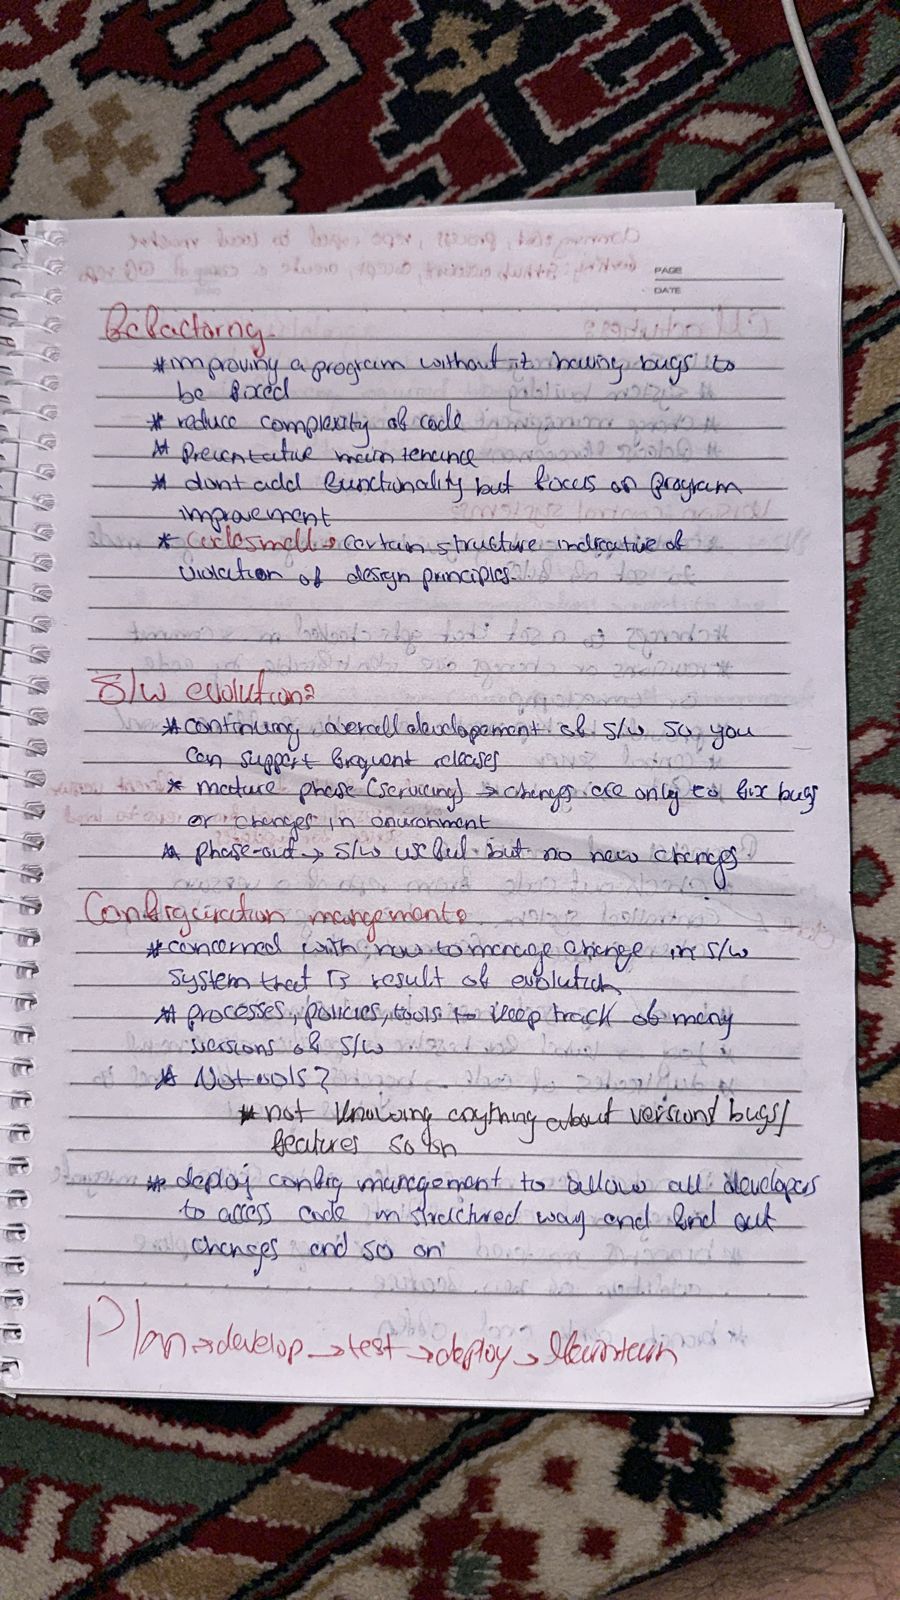 PAGE
DATE
Refactoring
* improving a program without it having bugs to
be fixed
* reduce complexity of code
* Preventative maintenance
* dont add functionality but focus on program
improvement
* code smell → certain structure indicative of
violation of design principles.
S/w evolution:
* continuing overall development of S/w so you
can support frequent releases
* mature phase (servicing) → changes are only to fix bugs
or changes in environment
* phase-out → S/w useful but no new changes
Configuration management:
* concerned with how to manage change in S/w
system that is result of evolution
* processes, policies, tools to keep track of many
versions of S/w
* Not
* not knowing anything about versions/bugs/
features so on
* deploy config management to allow all developers
to access code in structured way and find out
changes and so on
Plan → develop → test → deploy → Maintain